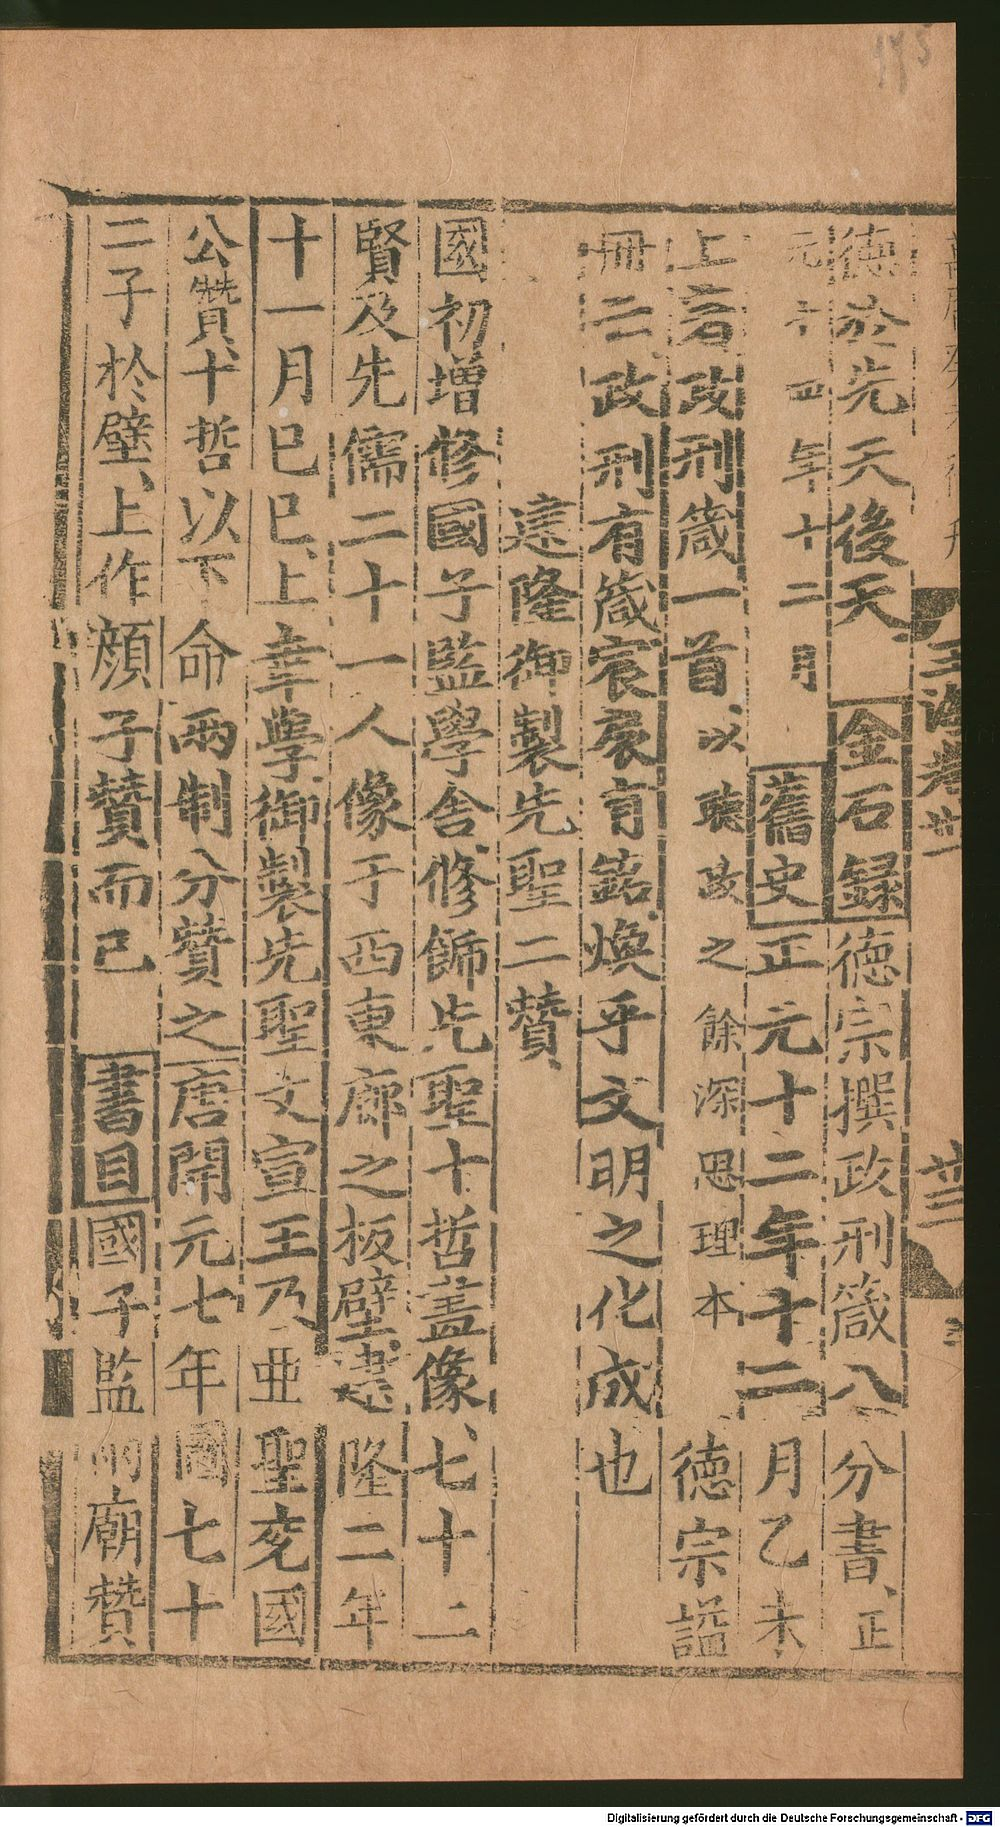 德於先天後天金石録德宗撰政刑箴八分書、正
元十四年十二月舊史正元十二年十二月乙未
上君政刑箴一首以聽政之餘深思理本德宗謚
冊云政刑有箴宸扆有銘煥乎文明之化成也
建隆御製先聖二贊
國初增修國子監學舍修飾先聖十哲盖像、七十二
賢及先儒二十一人像于西東廊之板壁建隆二年
十一月巳巳、上幸學御製先聖文宣王乃亞聖兖國
公贊、十哲以下命兩制分贊之唐開元七年圖七十
二子於壁、上作顔子贊而已書目國子監兩廟贊
玉海卷卅一
卅三
Digitalisierung gefördert durch die Deutsche Forschungsgemeinschaft - DFG